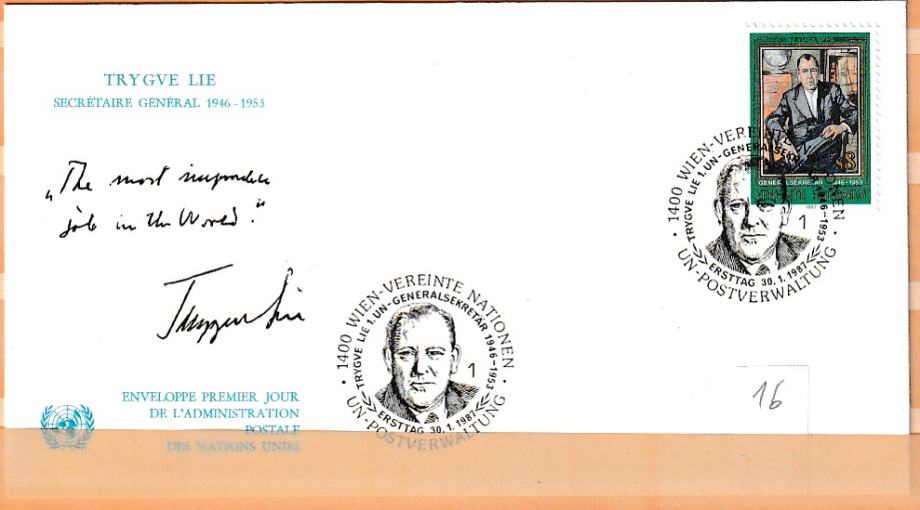 TRYGVE LIE
SECRÉTAIRE GÉNÉRAL 1946-1953
„The most
job in the World."
Trygve Lie
ENVELOPPE PREMIER JOUR
DE L'ADMINISTRATION
POSTALE
DES NATIONS UNIES
· 1400 WIEN-VEREINTE NATIONEN ·
TRYGVE LIE 1. UN-GENERALSEKRETÄR 1946-1953
1
ERSTTAG 30.1.1987
UN-POSTVERWALTUNG
S8
GENERALSEKRETÄR 1946-1953
· 1400 WIEN-VEREINTE NATIONEN ·
TRYGVE LIE 1. UN-GENERALSEKRETÄR 1946-1953
1
ERSTTAG 30.1.1987
UN-POSTVERWALTUNG
16